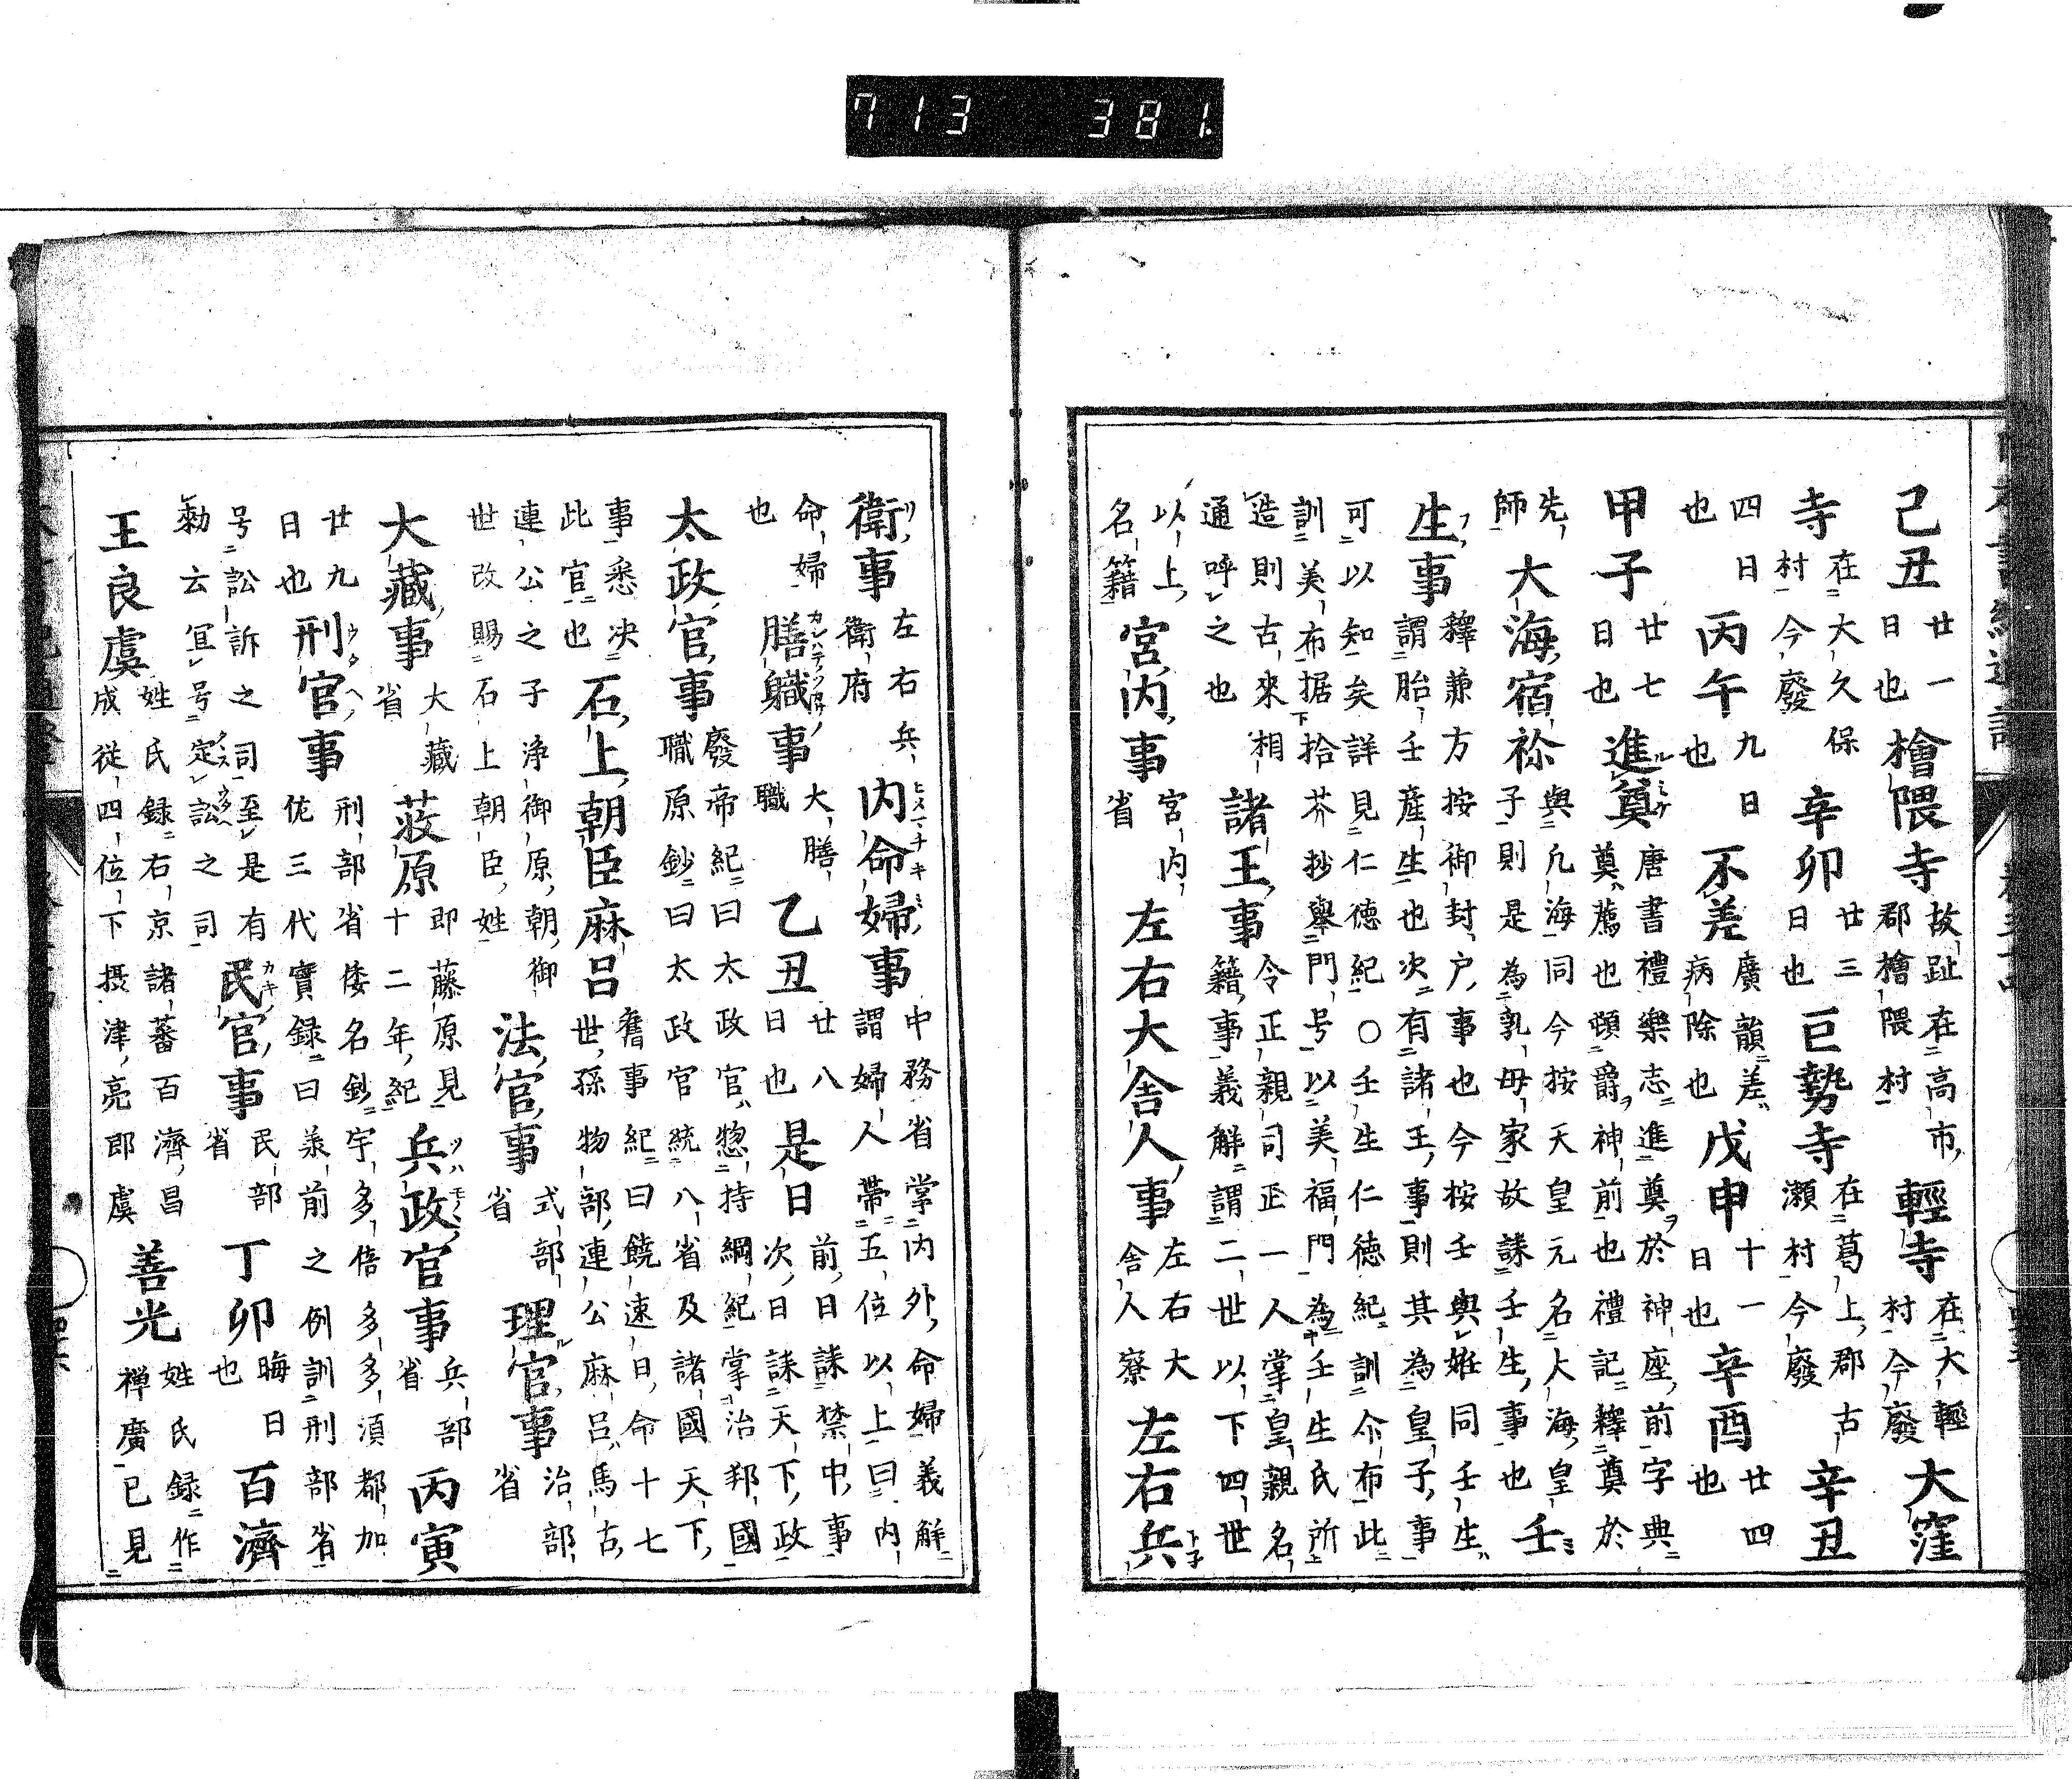 己丑 廿一日也 檜隈寺 故趾在高市郡檜隈村 輕寺 在大輕村今廢 大窪
寺 在大久保村今廢 辛卯 廿三日也 巨勢寺 在葛上郡古瀬村今廢 辛丑
四日也 丙午 九日也 不差 廣韻差病除也 戊申 十一日也 辛酉 廿四也
甲子 廿七日也 進奠 唐書禮樂志進奠於神座前字典奠薦也頓爵神前也禮記釋奠於
先師 大海宿祢 與凡海同今按天皇元名大海皇子則是為乳母家故誄壬生事也 壬
生事 釋兼方按御封戸事也今按壬與妊同壬生謂胎壬産生也次有諸王事則其為皇子事
可以知矣詳見仁德紀〇壬生仁德紀訓尓布此訓美布据拾芥抄舉門号以美福門為壬生氏所
造則古來相通呼之也 諸王事 令正親司正一人掌皇親名籍事義解謂二世以下四世
以上名籍 宮内事 宮内省 左右大舍人事 左右大舍人寮 左右兵
衛事 左右兵衛府 内命婦事 中務省掌内外命婦義解謂婦人帶五位以上曰内
命婦也 膳職事 大膳職 乙丑 廿八日也 是日 前日誄禁中事次日誄天下政
太政官事 廢帝紀曰太政官惣持綱紀掌治邦國職原鈔曰太政官統八省及諸國天下
事悉决此官也 石上朝臣麻呂 舊事紀曰饒速日命十七世孫物部連公麻呂馬古
連公之子浄御原朝御世改賜石上朝臣姓 法官事 式部省 理官事 治部省
大藏事 大藏省 藤原 即藤原見十二年紀 兵政官事 兵部省 丙寅
廿九日也 刑官事 刑部省倭名鈔宇多倍多多須都加佐三代實録曰承前之例訓刑部省
号訟訴之司至是有勅云宜号定訟之司 民官事 民部省 丁卯 晦日也 百濟
王良虞 姓氏録右京諸蕃百濟昌成從四位下摂津亮郎虞 善光 姓氏録作禅廣已見